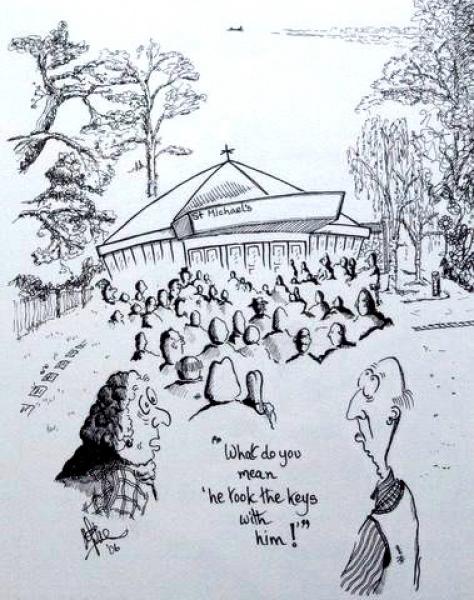 St Michael's
"What do you
mean
'he took the keys
with
him!'"
'06